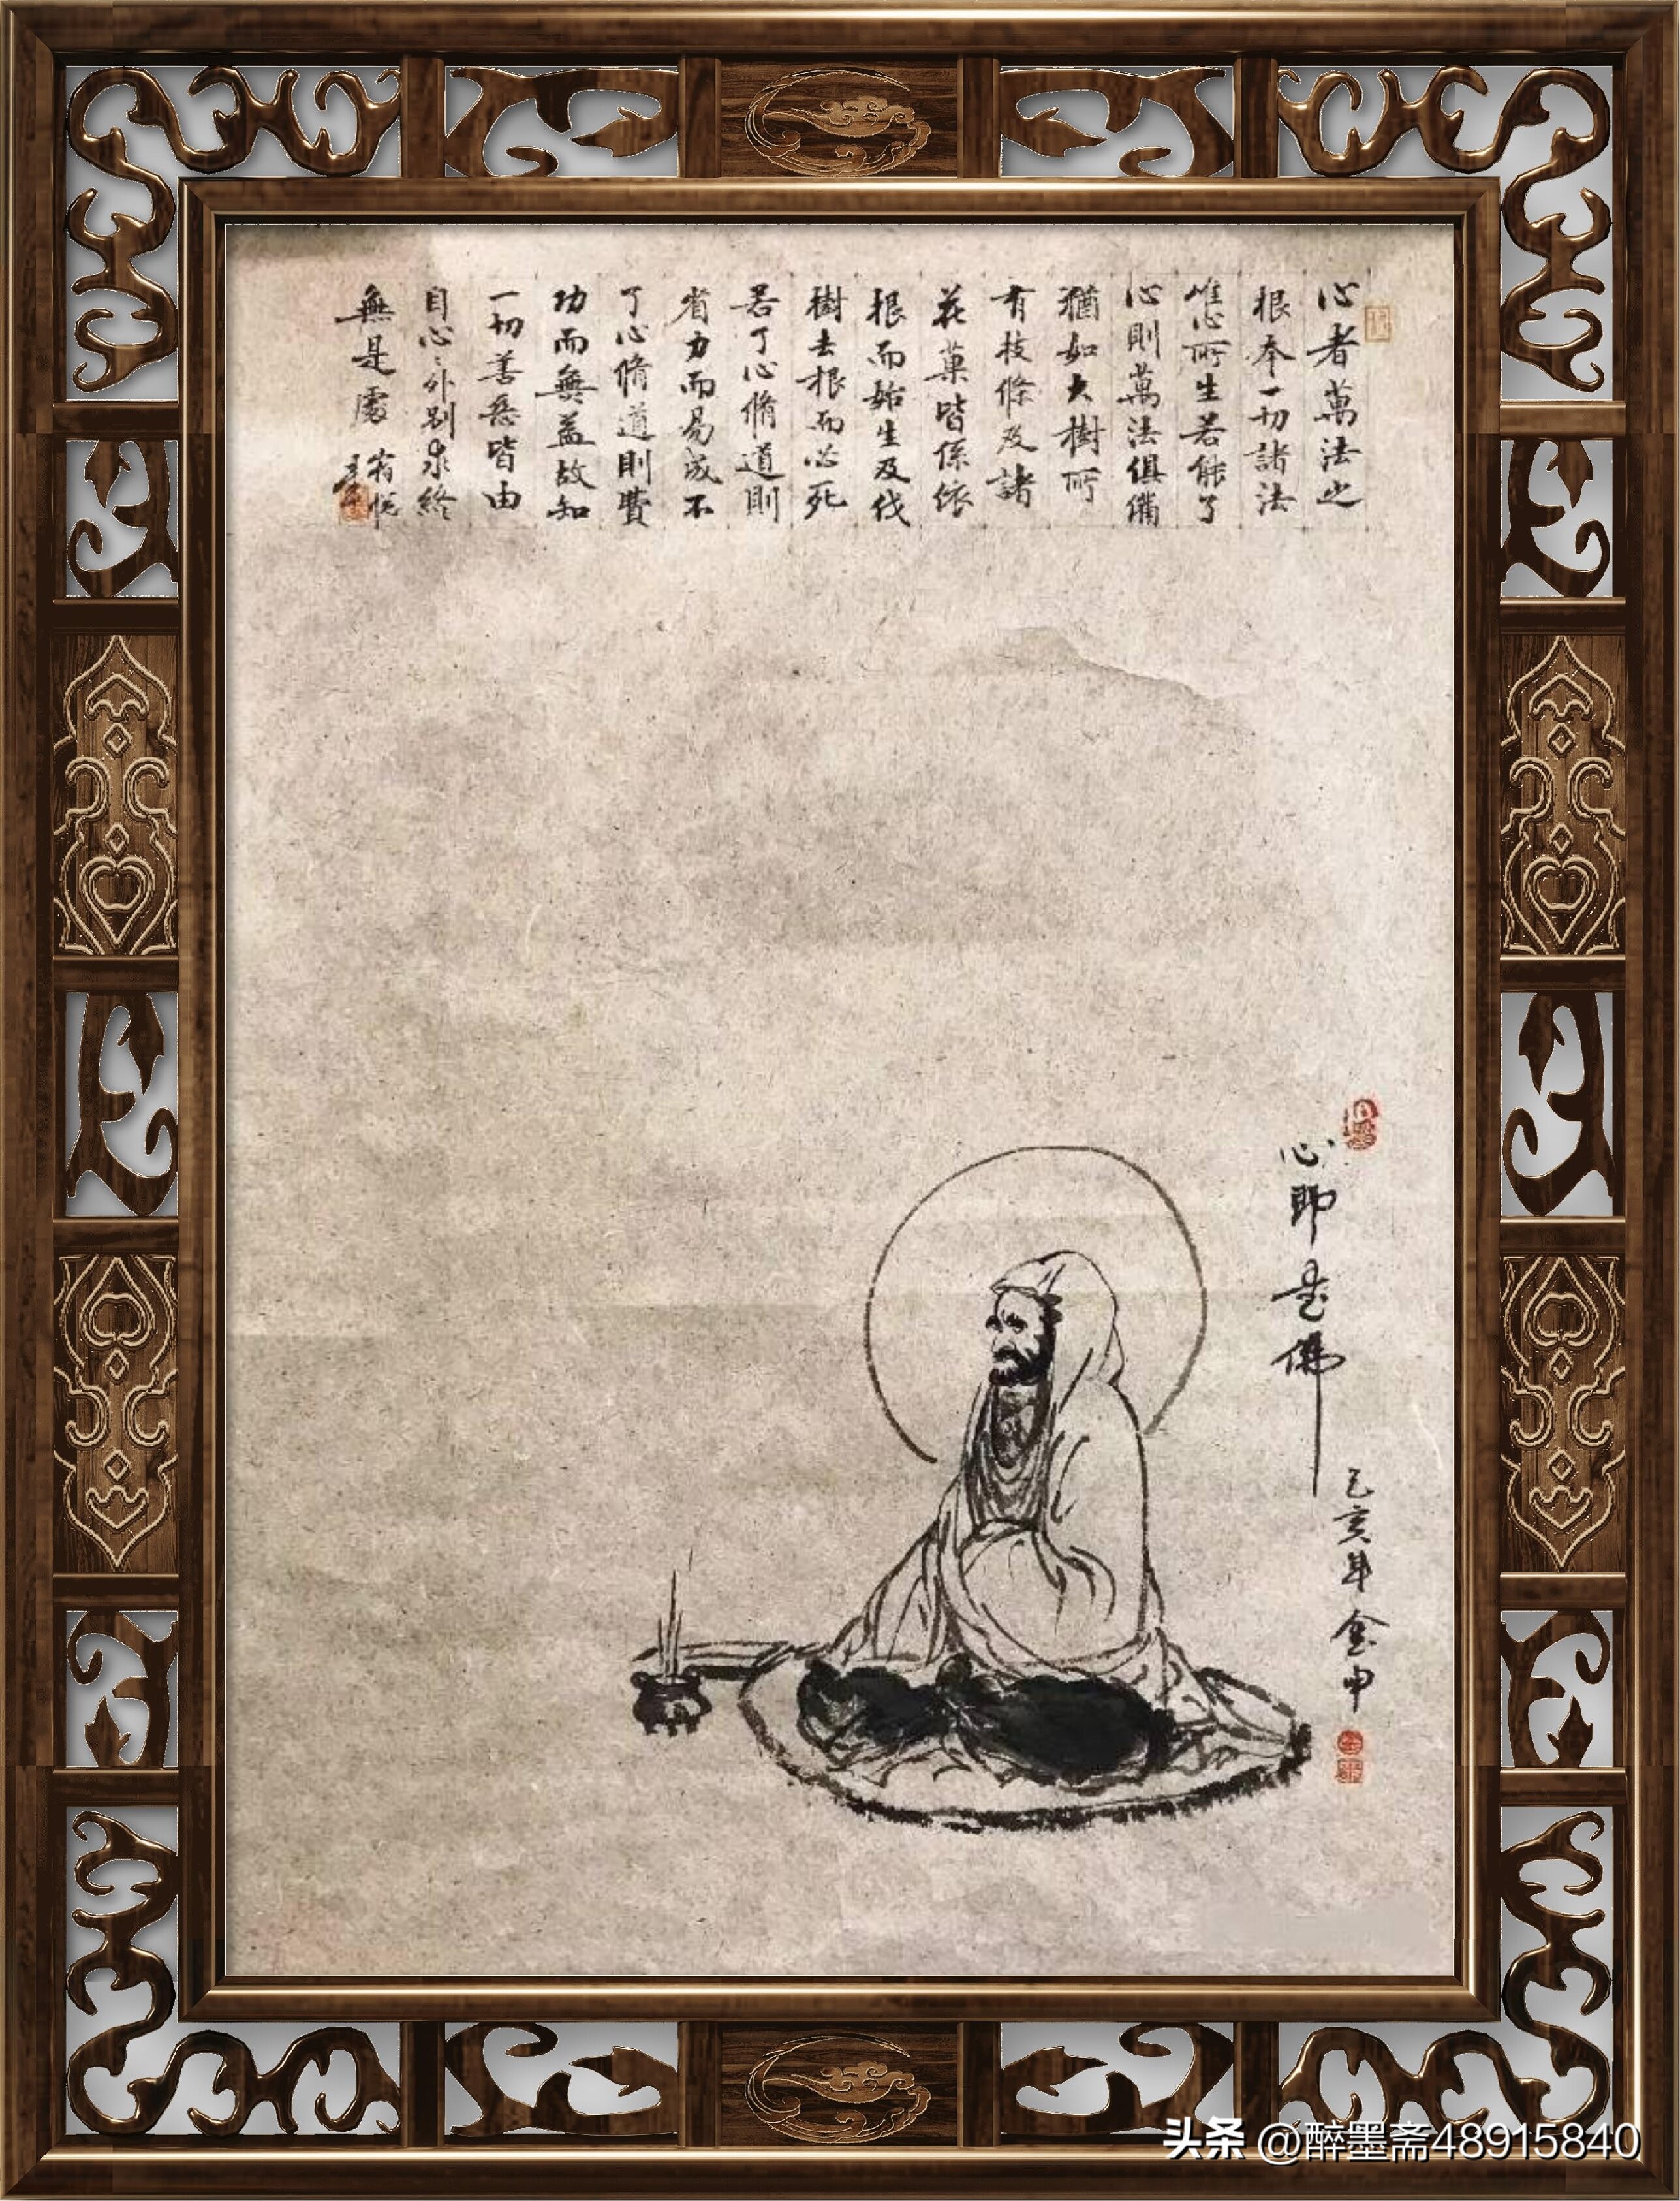 心者萬法之
根本一切諸法
唯心所生若能了
心則萬法俱備
猶如大樹所
有枝條及諸
花菓皆係依
根而始生及伐
樹去根而必死
若了心脩道則
省力而易成不
了心脩道則費
功而無益故知
一切善惡皆由
自心〻外別求終
無是處
心即是佛
己亥年金申
头条 @醉墨斋48915840